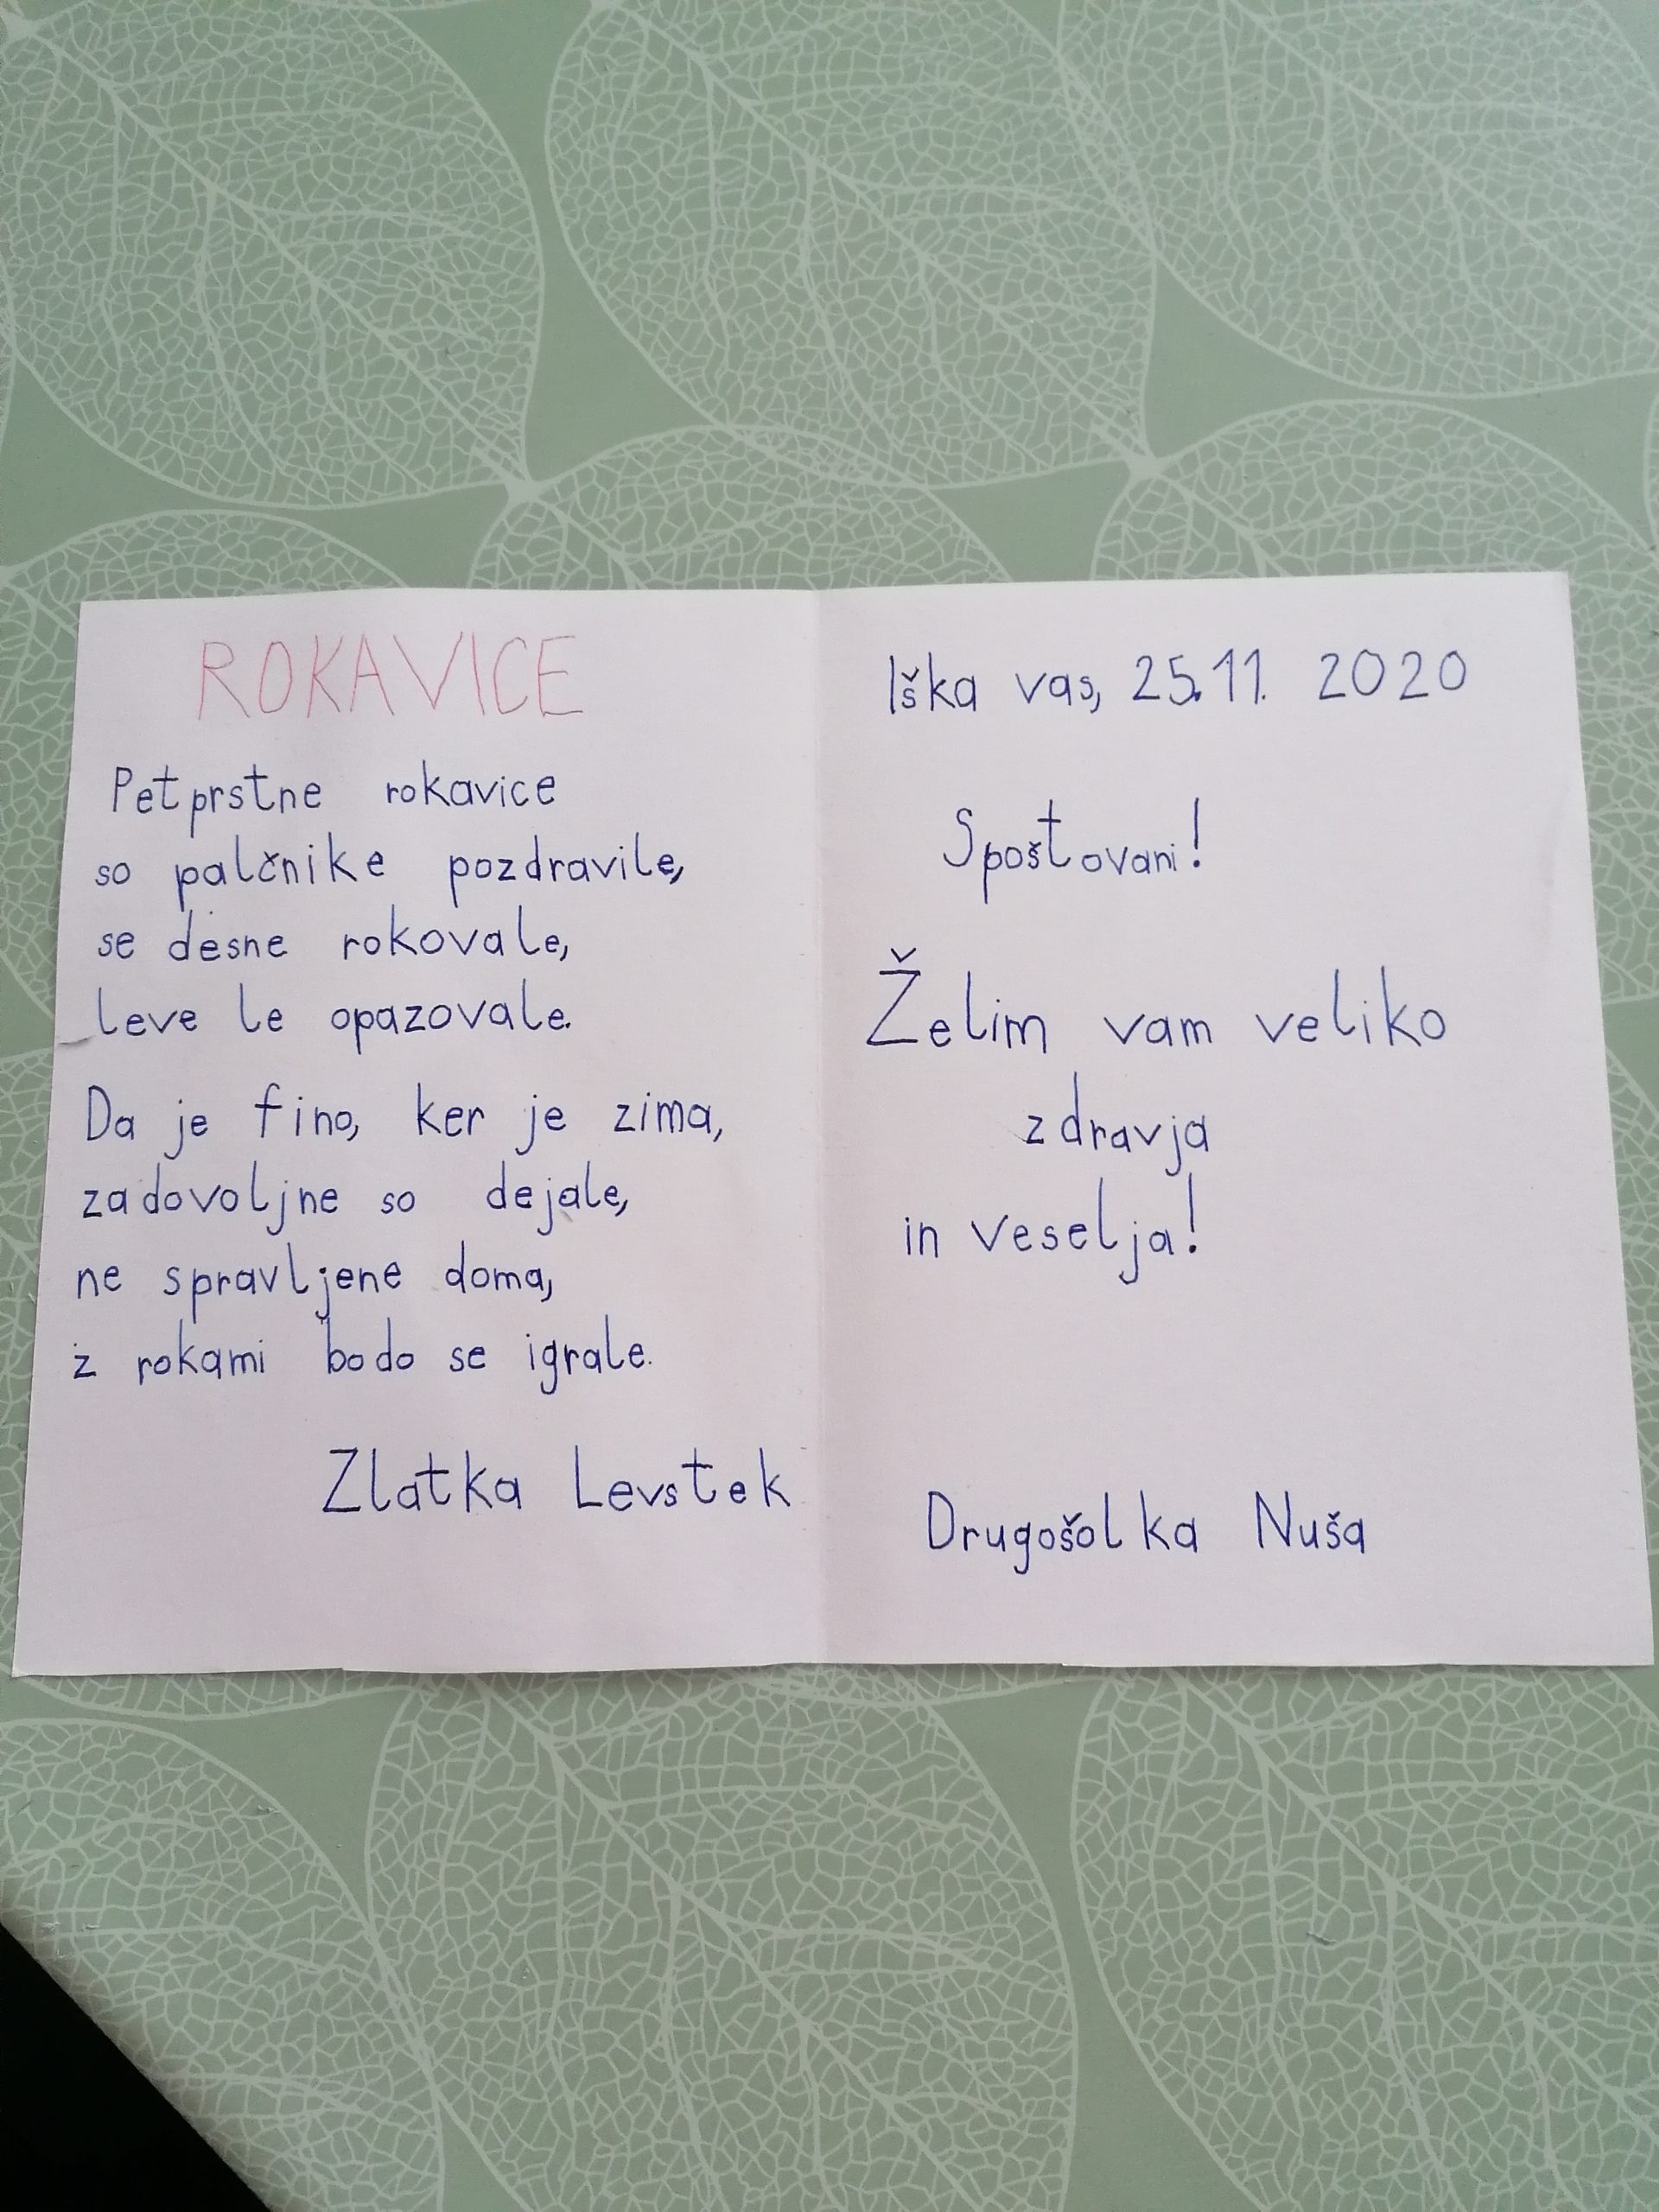 ROKAVICE
Petprstne rokavice
so palčnike pozdravile,
se desne rokovale,
leve le opazovale.
Da je fino, ker je zima,
zadovoljne so dejale,
ne spravljene doma,
z rokami bodo se igrale.
Zlatka Levstek
Iška vas, 25.11. 2020
Spoštovani!
Želim vam veliko
zdravja
in veselja!
Drugošolka Nuša